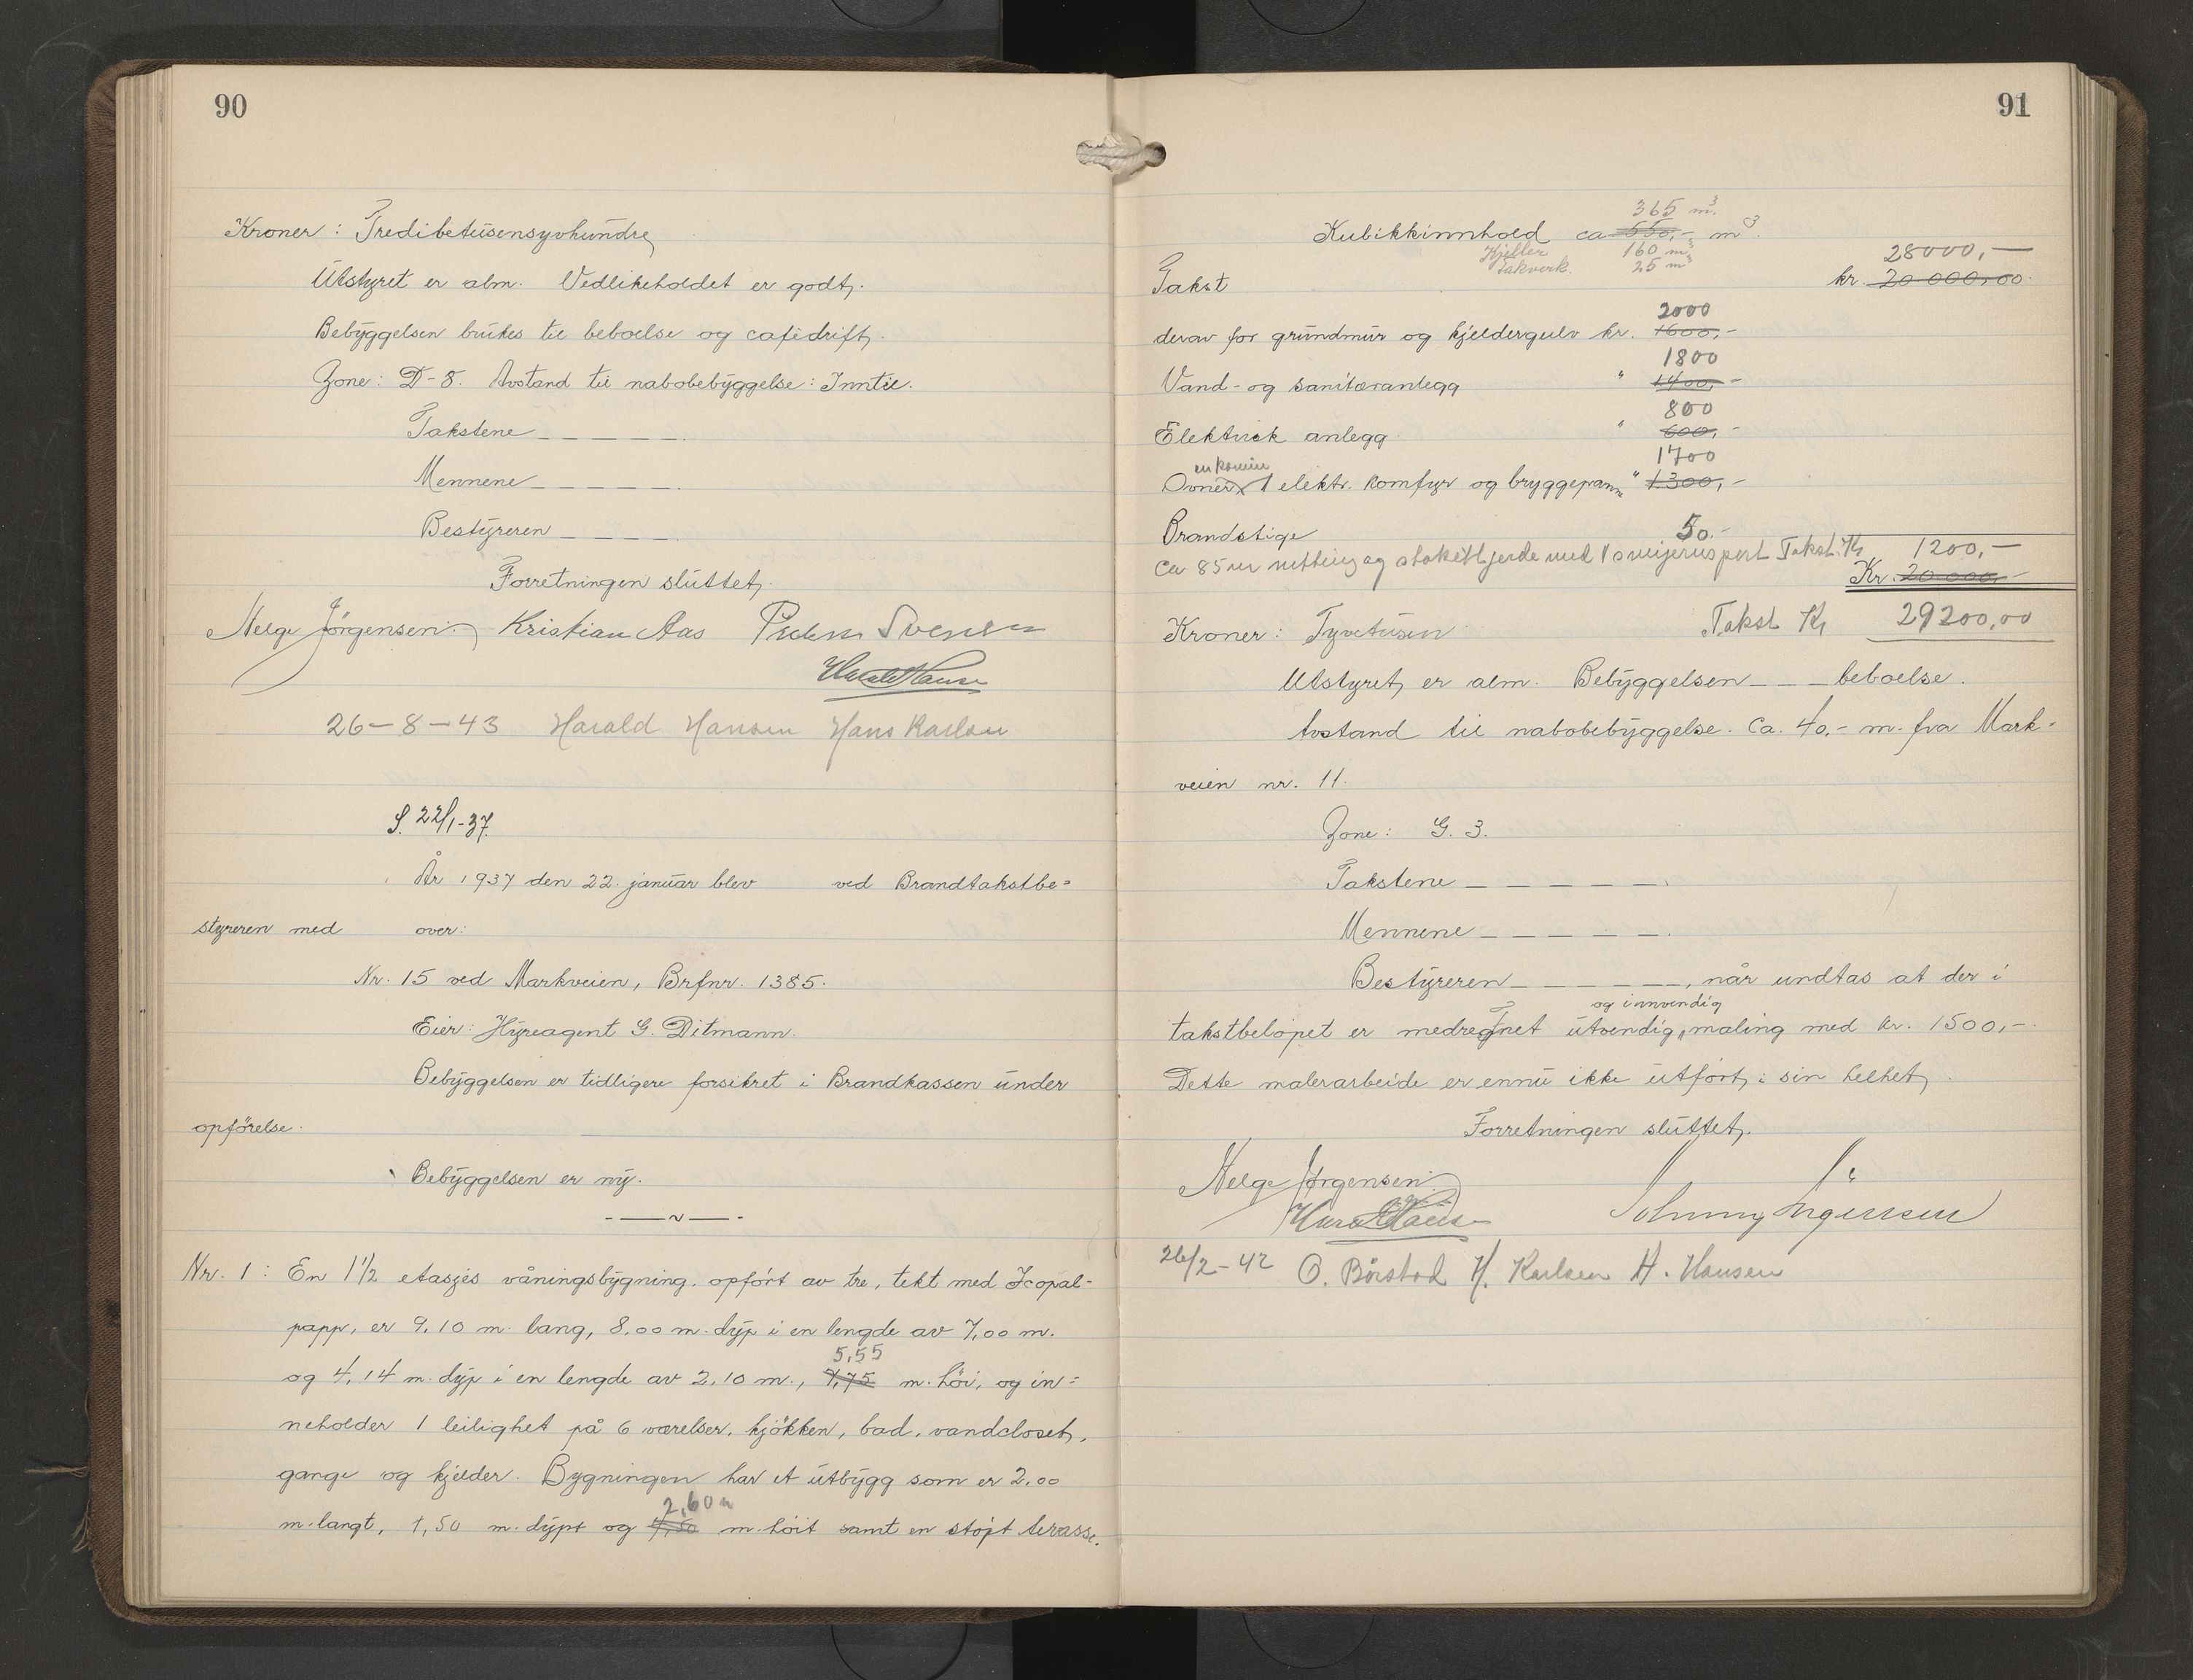 90
Kroner: Tredivetusensyvhundre
Utstyret er alm. Vedlikeholdet er godt.
Bebyggelsen brukes til beboelse og cafédrift.
Zone: D-8. Avstand til nabobebyggelse: Inntil.
Takstene _ _ _ _ _.
Mennene _ _ _ _ _.
Bestyreren _ _ _ _.
Forretningen sluttet.
Helge Jörgensen. Kristian Aas
Harald Hansen
26-8-43 Harald Hansen Hans Karlsen
S. 22/1-37.
År 1937 den 22. januar blev ved Brandtakstbe=
styreren med over:
Nr. 15 ved Markveien, Brfnr. 1385.
Eier: Hyreagent G. Ditmann.
Bebyggelsen er tidligere forsikret i Brandkassen under
opförelse.
Bebyggelsen er ny.
Nr. 1: En 1 1/2 etasjes våningsbygning, opfört av tre, tekt med Icopal-
papp, er 9,10 m. lang, 8,00 m. dyp i en lengde av 7,00 m.
5,55
og 4,14 m. dyp i en lengde av 2,10 m., 7,75 m. höi, og in=
neholder 1 leilighet på 6 værelser, kjökken, bad, vandcloset,
gange og kjelder. Bygningen har et utbygg som er 2,00
2,60 m
m. langt, 1,50 m. dypt og 4,50 m. höit samt en stöpt terasse.
91
365 m³.
Kubikkinnhold ca 550,- m³.
Kjeller 160 m³
Takverk. 25 m³
28000,-
Takst kr. 20 000,00.
2000
derav for grundmur og kjeldergulv kr. 1600,-
1800
Vand- og sanitæranlegg " 1400,-
800
Elektrisk anlegg " 600,-
en kamin 1700
Ovner, 1 elektr. komfyr og bryggepanne " 1300,-
Brandstige 50.-
Ca 85 m netting og stakittgjerde med 1 smijernsport Takst. Kr. 1200,-
Kr. 20 000,-
Kroner: Tyvetusen Takst Kr 29200,00
Utstyret er alm. Bebyggelsen _ _ _ beboelse.
Avstand til nabobebyggelse. Ca. 40,- m. fra Mark-
veien nr. 11.
Zone: G. 3.
Takstene _ _ _ _ _ _.
Mennene _ _ _ _ _ _.
Bestyreren _ _ _ _ _ _, når undtas at der i
og innvendig
takstbelöpet er medregnet utvendig maling med kr. 1500,-.
Dette malerarbeide er ennu ikke utfört i sin helhet.
Forretningen sluttet.
Helge Jörgensen.
Harald Hansen Johnny Ingensen
26/2-42 O. Börstad H. Karlsen H. Hansen